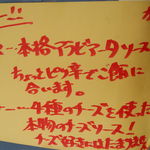 …本格アラビアータソース
ちょっとピリ辛でご飯に
合います。
……4種のチーズを使った
本物のチーズソース!
チーズ好きにはたまら